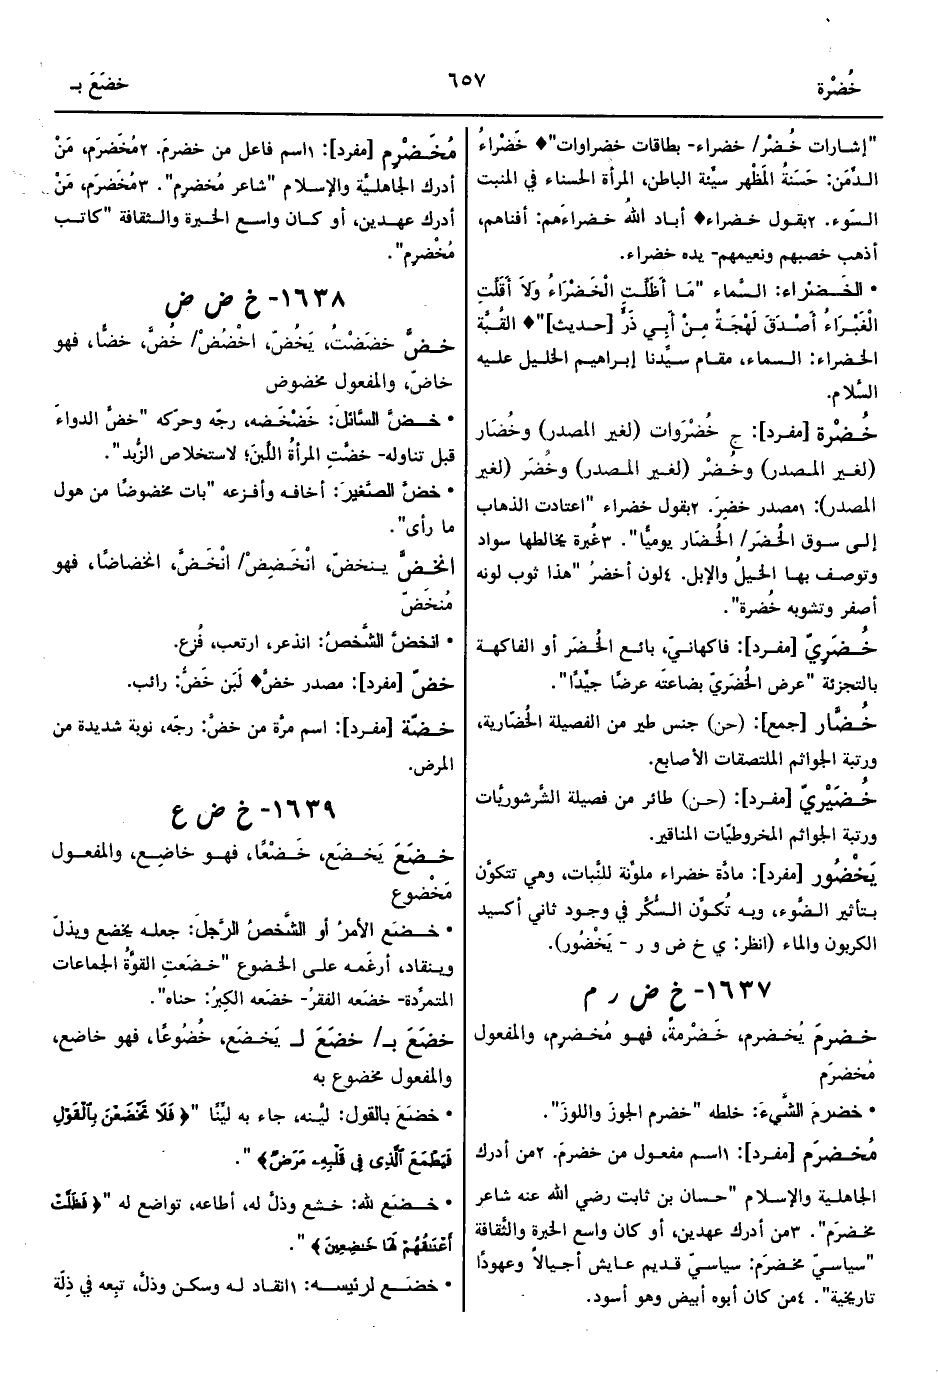 خُضْرة
٦٥٧
خضَعَ بـ
"إشارات خُضْر/ خضراء- بطاقات خضراوات"♦ خَضْراءُ
الدِّمَن: حَسَنةُ المَظْهر سيّئة الباطن، المرأة الحسناء في المنبت
السّوء. ٢بقول خضراء♦ أباد اللهُ خضراءَهم: أفناهم،
أذهب خصبهم ونعيمهم- يده خضراء.
• الخَضْراء: السَّماء "مَا أَظَلَّتِ الْخَضْرَاءُ وَلاَ أَقَلَّتِ
الْغَبْرَاءُ أَصْدَقَ لَهْجَةً مِنْ أَبِي ذَرٍّ [حديث]"♦ القُبَّة
الخضراء: السماء، مقام سيِّدنا إبراهيم الخليل عليه
السَّلام.
خُضْرة [مفرد]: ج خُضْرَوات (لغير المصدر) وخُضَار
(لغير المصدر) وخُضْر (لغير المصدر) وخُضَر (لغير
المصدر): ١مصدر خضِرَ. ٢بقول خضراء "اعتادت الذهاب
إلى سوق الخُضَر/ الخُضار يوميًّا". ٣غُبرة يخالطها سواد
وتوصف بها الخيلُ والإبل. ٤لون أخضرُ "هذا ثوب لونه
أصفر وتشوبه خُضرة".
خُضَرِيّ [مفرد]: فاكهانيّ، بائع الخُضَر أو الفاكهة
بالتجزئة "عرض الخُضَريّ بضاعته عرضًا جيِّدًا".
خُضَّار [جمع]: (حن) جنس طير من الفصيلة الخُضّارية،
ورتبة الجواثم الملتصقات الأصابع.
خُضَيْرِيّ [مفرد]: (حن) طائر من فصيلة الشَّرشوريَّات
ورتبة الجواثم المخروطيّات المناقير.
يَخْضُور [مفرد]: مادَّة خضراء ملوِّنة للنَّبات، وهي تتكوَّن
بتأثير الضَّوء، وبه تُكوِّن السُّكَّر في وجود ثاني أكسيد
الكربون والماء (انظر: ي خ ض و ر - يَخْضُور).
١٦٣٧- خ ض ر م
خضرمَ يُخضرم، خَضْرمةً، فهو مُخضرِم، والمفعول
مُخضرَم
• خضرمَ الشَّيءَ: خلطه "خضرم الجوزَ واللوزَ".
مُخضرَم [مفرد]: ١اسم مفعول من خضرمَ. ٢من أدرك
الجاهلية والإسلام "حسان بن ثابت رضي الله عنه شاعر
مخضرَم". ٣من أدرك عهدين، أو كان واسع الخبرة والثَّقافة
"سياسيّ مخضرَم: سياسيّ قديم عايش أجيالاً وعهودًا
تاريخية". ٤من كان أبوه أبيض وهو أسود.
مُخَضْرِم [مفرد]: ١اسم فاعل من خضرمَ. ٢مُخَضرِم، مَنْ
أدرك الجاهليَّة والإسلام "شاعر مُخضرِم". ٣مُخَضرَم، مَنْ
أدرك عهدين، أو كان واسع الخبرة والثقافة "كاتب
مُخْضرِم".
١٦٣٨- خ ض ض
خضَّ خضَضْتُ، يَخُضّ، اخْضُضْ/ خُضَّ، خضًّا، فهو
خاضّ، والمفعول مخضوض
• خضَّ السَّائلَ: خَضْخَضه، رجّه وحرّكه "خضَّ الدواءَ
قبل تناوله- خضَّتِ المرأةُ اللَّبنَ؛ لاستخلاص الزُّبد".
• خضَّ الصَّغيرَ: أخافه وأفزعه "بات مخضوضًا من هول
ما رأى".
انخضَّ ينخضّ، انْخَضِضْ/ انْخَضَّ، انخضاضًا، فهو
مُنخَضّ
• انخضَّ الشَّخصُ: انذعر، ارتعب، فُزع.
خضّ [مفرد]: مصدر خضَّ♦ لَبَن خَضٌّ: رائب.
خضّة [مفرد]: اسم مرَّة من خضَّ: رجّه، نوبة شديدة من
المرض.
١٦٣٩- خ ض ع
خضَعَ يَخضَع، خَضْعًا، فهو خاضِع، والمفعول
مَخْضوع
• خضَع الأمرُ أو الشَّخصُ الرَّجلَ: جعله يخضع ويذلّ
وينقاد، أرغمه على الخضوع "خضَعتِ القوَّةُ الجماعات
المتمرِّدة- خضَعه الفقرُ- خضَعه الكِبرُ: حناه".
خضَعَ بـ/ خضَعَ لـ يَخضَع، خُضُوعًا، فهو خاضع،
والمفعول مخضوع به
• خضَعَ بالقول: ليّنه، جاء به ليِّنًا "﴿ فَلَا تَخْضَعْنَ بِالْقَوْلِ
فَيَطْمَعَ الَّذِى فِى قَلْبِهِۦ مَرَضٌ﴾ ".
• خضَع لله: خشع وذلّ له، أطاعه، تواضع له "﴿ فَظَلَّتْ
أَعْنَٰقُهُمْ لَهَا خَٰضِعِينَ﴾ ".
• خضَع لرئيسه: ١انقاد له وسكن وذلَّ، تبعه في ذِلّة